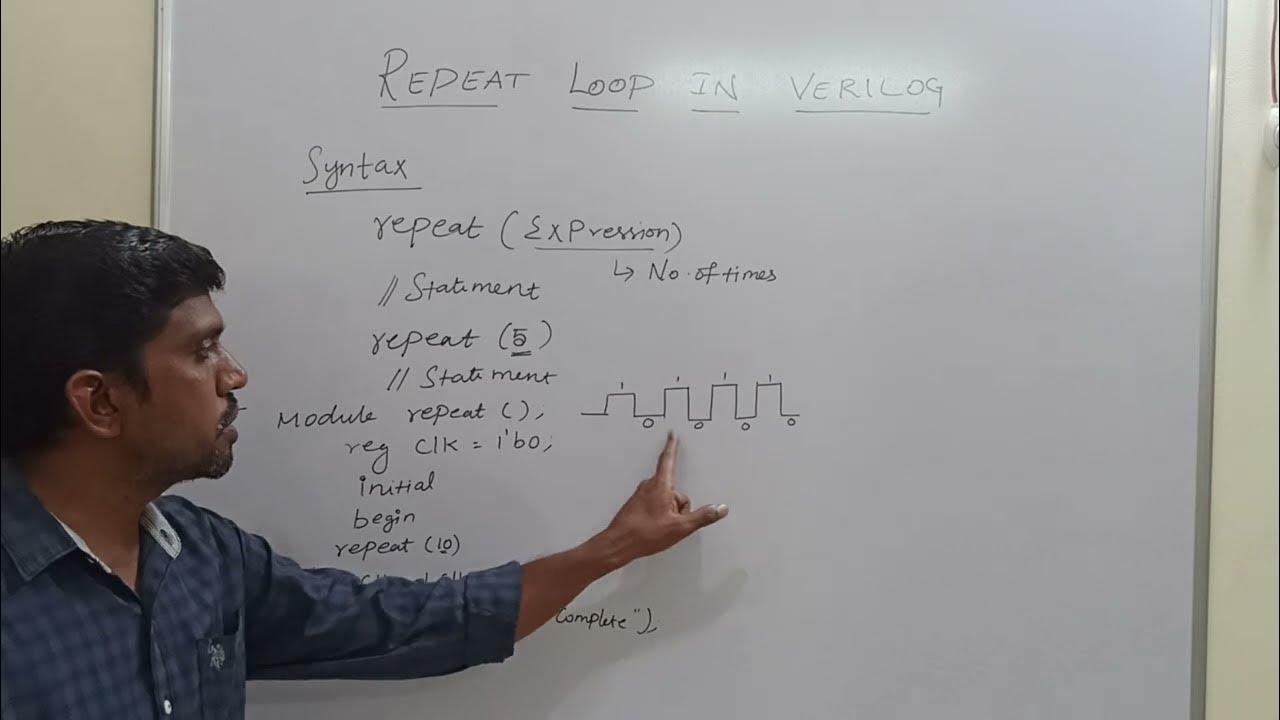 REPEAT LOOP IN VERILOG
Syntax
repeat (Expression)
↳ No. of times
// Statement
repeat (5)
// Statement
Module repeat ();
reg Clk = 1'b0;
initial
begin
repeat (10)
Complete");
1 1 1 1
0 0 0 0